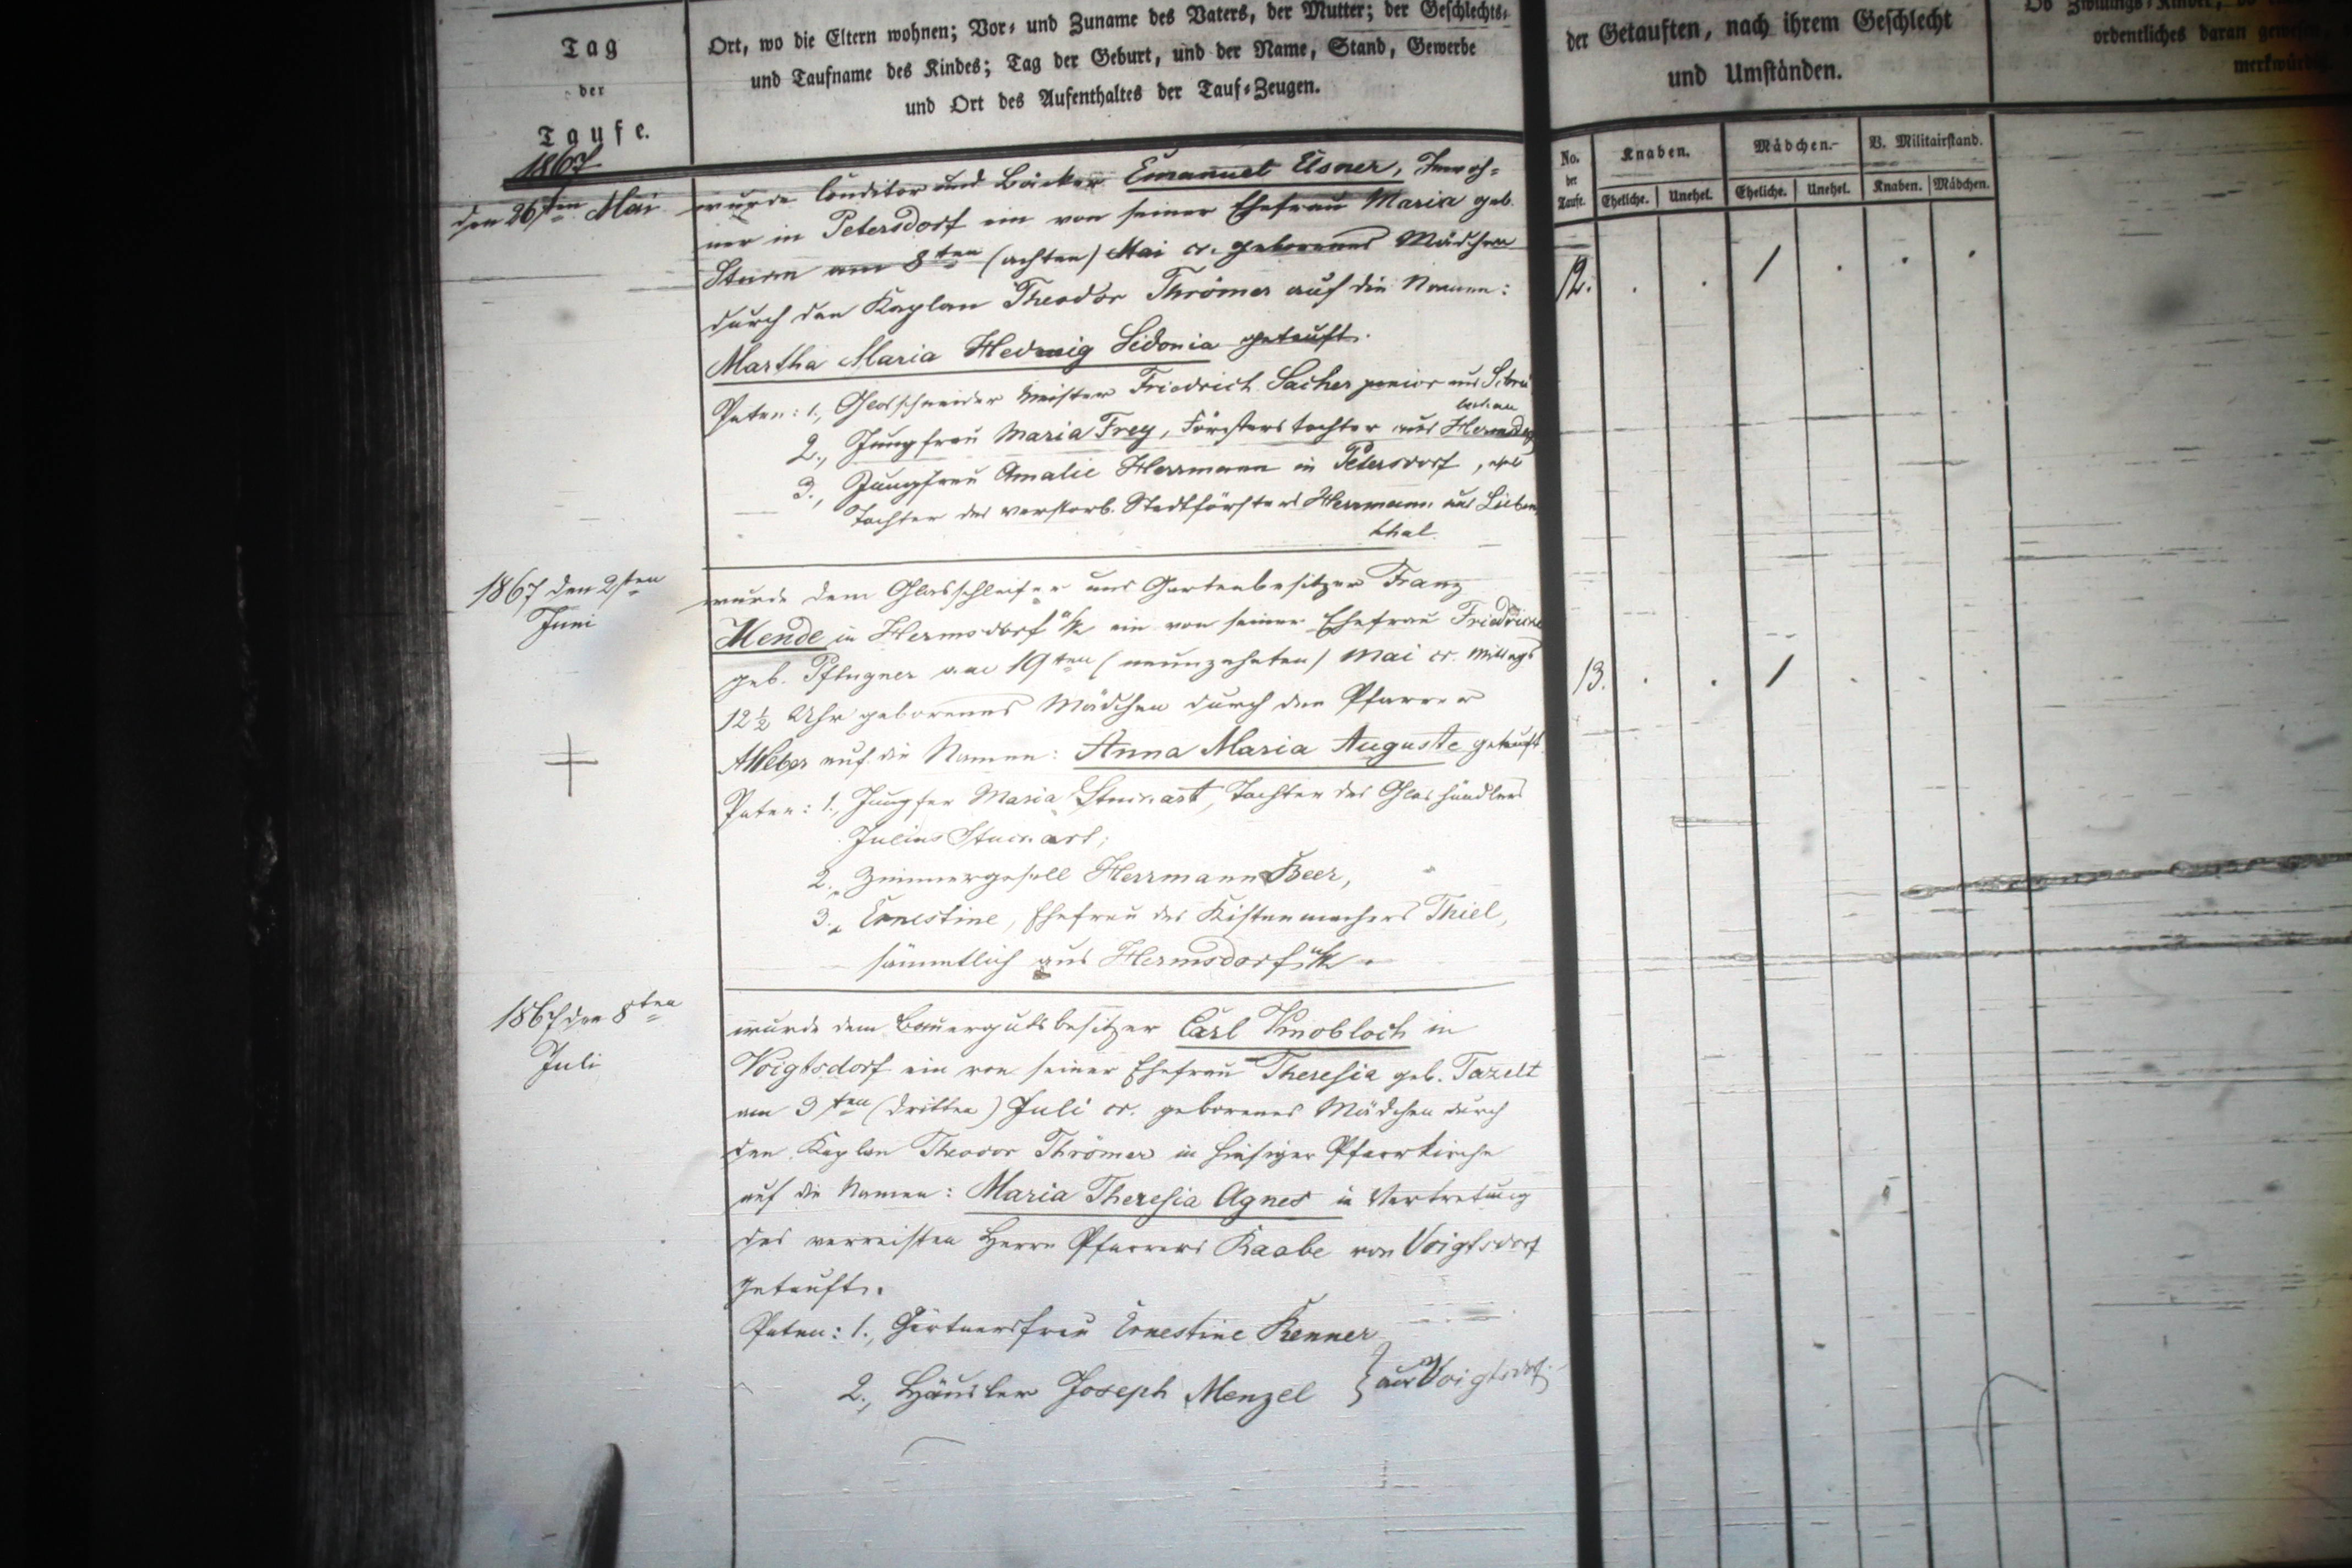 Tag
der
Taufe.
Ort, wo die Eltern wohnen; Vor- und Zuname des Vaters, der Mutter; der Geschlechts-
und Taufname des Kindes; Tag der Geburt, und der Name, Stand, Gewerbe
und Ort des Aufenthaltes der Tauf-Zeugen.
der Getauften, nach ihrem Geschlecht
und Umständen.
ordentliches daran gewesen,
No.
der
Taufe.
Knaben.
Mädchen.
V. Militairstand.
Eheliche. Unehel. Eheliche. Unehel. Knaben. Mädchen.
1867
den 26ten Mai
wurde Conditor und Bäcker Emanuel Elsner, Inwoh-
ner in Petersdorf ein von seiner Ehefrau Maria geb.
Sturm am 8ten (achten) Mai cr. geborenes Mädchen
durch den Kaplan Theodor Thrömer auf die Namen:
Martha Maria Hedwig Sidonia getauft.
Paten: 1., Glasschneider Meister Friedrich Sacher aus
2., Jungfrau Maria Frey, Försters tochter aus
3., Jungfrau Amalie Herrmann in Petersdorf,
Tochter des verstorb. Stadtförsters Herrmann aus Lieben
thal.
12.
1867 den 2ten
Juni
wurde dem Glasschleifer und Gartenbesitzer Franz
Mende in Hermsdorf u/K ein von seiner Ehefrau Friedricke
geb. Pflugner am 19ten (neunzehnten) Mai cr. Mittags
12½ Uhr geborenes Mädchen durch den Pfarrer
Weber auf die Namen: Anna Maria Auguste getauft.
Paten: 1., Jungfer Maria, Tochter des Glashändlers
Julius
2., Zimmergesell Herrmann Beer,
3., Ernestine, Ehefrau des Kistenmachers Thiel,
sämmtlich aus Hermsdorf u/K.
13.
1867 den 8ten
Juli
wurde dem Bauergutsbesitzer Carl Knobloch in
Voigtsdorf ein von seiner Ehefrau Theresia geb. Tazelt
am 3ten (dritten) Juli cr. geborenes Mädchen durch
den Kaplan Theodor Thrömer in hiesiger Pfarrkirche
auf die Namen: Maria Theresia Agnes in Vertretung
des verreisten Herrn Pfarrers Raabe von Voigtsdorf
getauft.
Paten: 1., Gärtnersfrau Ernestine Renner
2., Häusler Joseph Menzel } aus Voigtsdorf.